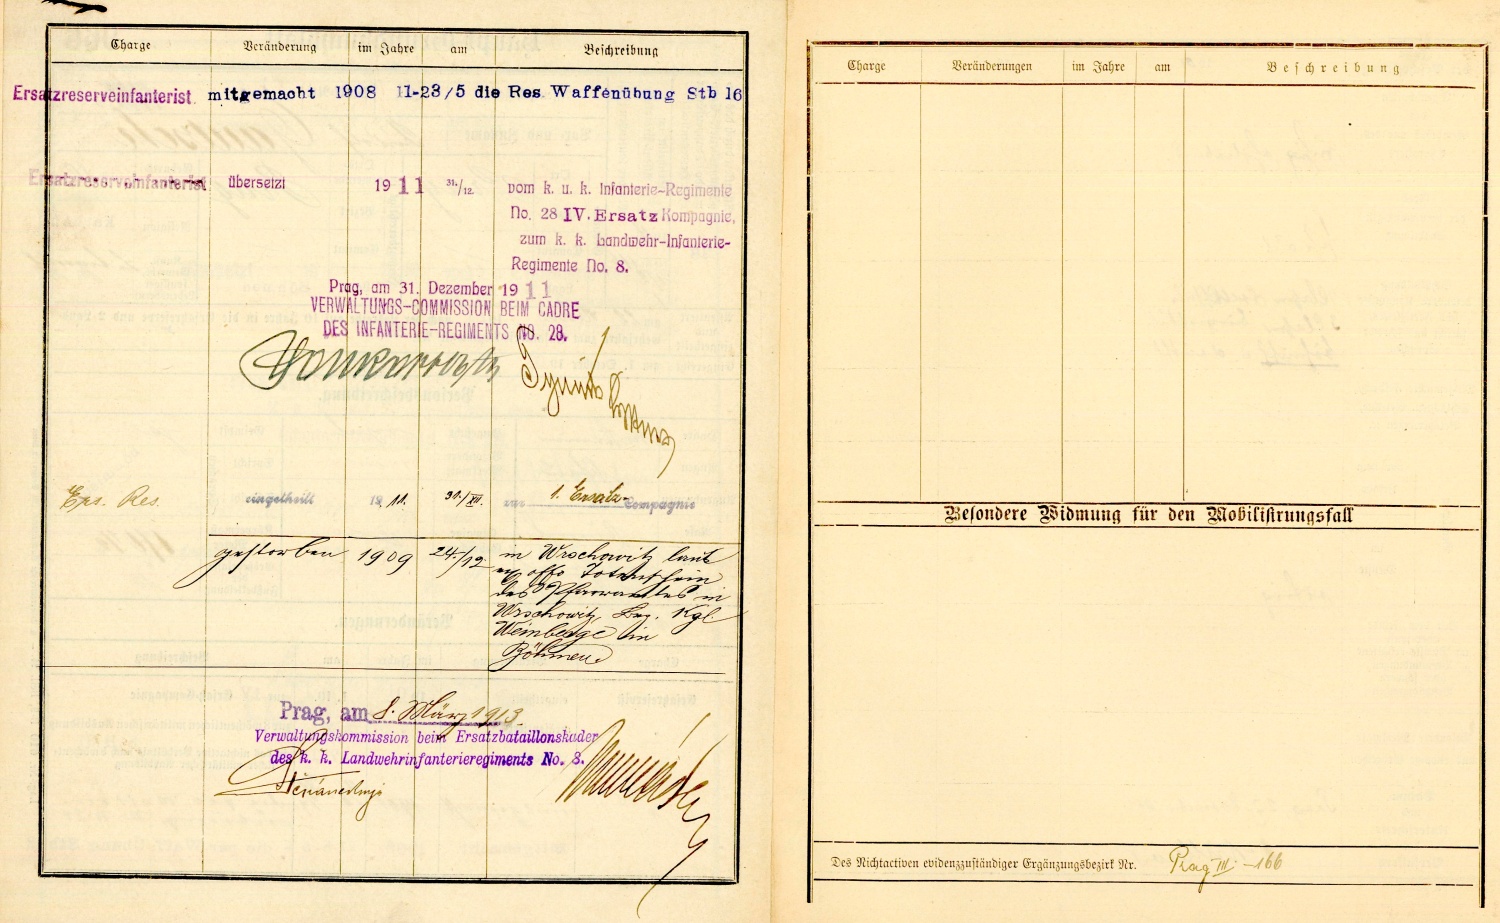 Charge Veränderung im Jahre am Beschreibung
Ersatzreserveinfanterist mitgemacht 1908 11-23/5 die Res. Waffenübung Stb 16
Ersatzreserveinfanterist übersetzt 1911 31./12. vom k. u. k. Infanterie-Regimente
No. 28 IV. Ersatz Kompagnie,
zum k. k. Landwehr-Infanterie-
Regimente No. 8.
Prag, am 31. Dezember 1911
VERWALTUNGS-COMMISSION BEIM CADRE
DES INFANTERIE-REGIMENTS NO. 28.
Ers. Res. eingetheilt 1911. 31./XII. zur 1. Ersatz-Compagnie
gestorben 1909 24./12 in Wrschowitz laut
ex offo Totenschein
des Pfarramtes in
Wrschowitz, Bez. Kgl.
Weinberge in
Böhmen
Prag, am 8. März 1913.
Verwaltungskommission beim Ersatzbataillonskader
des k. k. Landwehrinfanterieregiments No. 8.
Charge Veränderungen im Jahre am Beschreibung
Besondere Widmung für den Mobilisirungsfall
Des Nichtactiven evidenzzuständiger Ergänzungsbezirk Nr. Prag III - 166